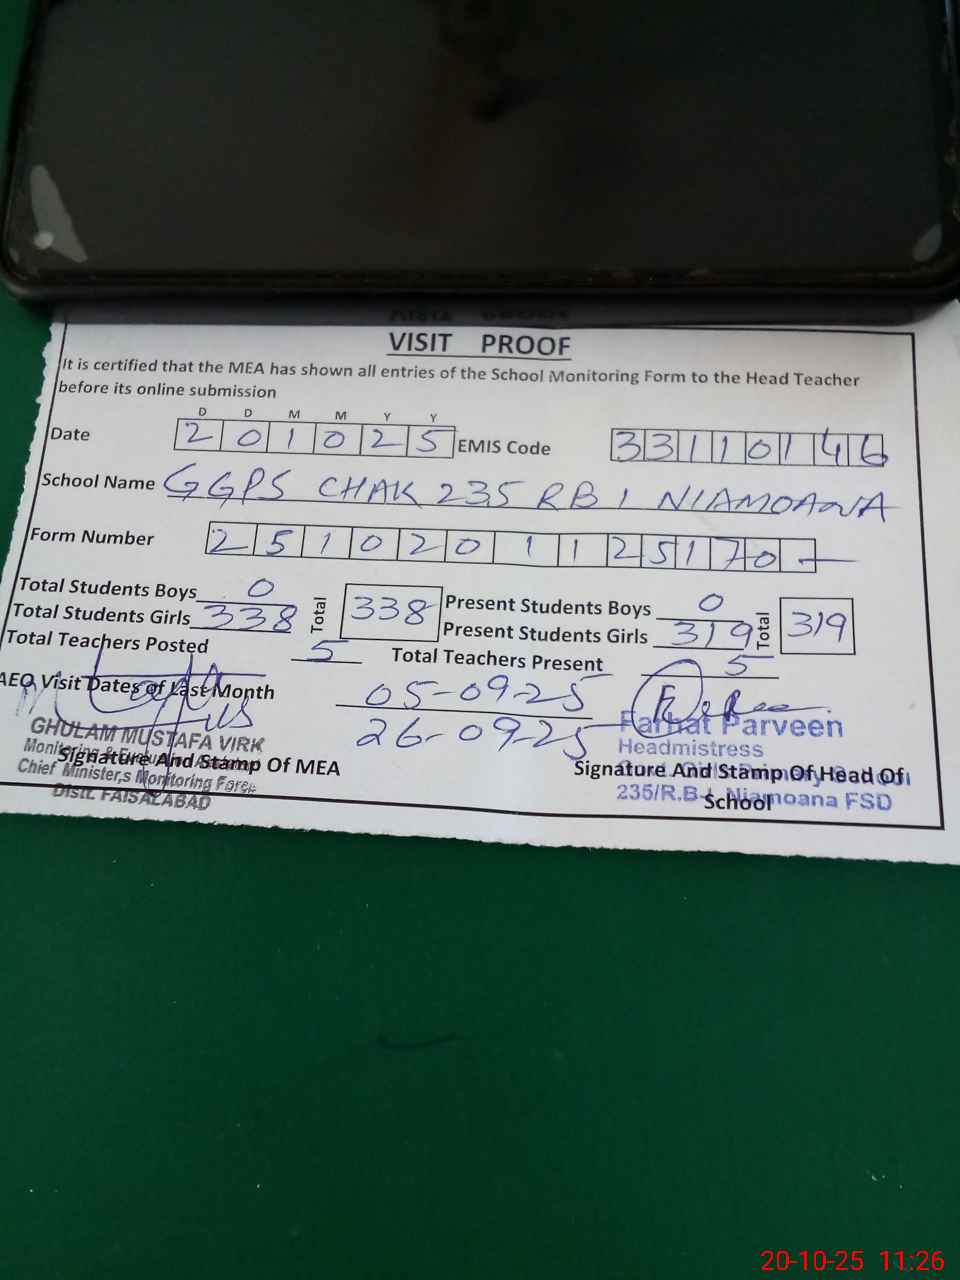 VISIT PROOF
It is certified that the MEA has shown all entries of the School Monitoring Form to the Head Teacher
before its online submission
D D M M Y Y
Date 2 0 1 0 2 5 EMIS Code 3 3 1 1 0 1 4 6
School Name GGPS CHAK 235 RB 1 NIAMOANA
Form Number 2 5 1 0 2 0 1 1 2 5 1 7 0 -
Total Students Boys 0 Total 338 Present Students Boys 0 Total 319
Total Students Girls 338 Present Students Girls 319
Total Teachers Posted 5 Total Teachers Present 5
AEO Visit Dates of Last Month 05-09-25
26-09-25
GHULAM MUSTAFA VIRK
Monitoring & Evaluation
Chief Minister,s Monitoring Force
Distt. FAISALABAD
Signature And Stamp Of MEA
Farhat Parveen
Headmistress
Govt. Girls Primary School
235/R.B-I, Niamoana FSD
Signature And Stamp Of Head Of
School
20-10-25 11:26